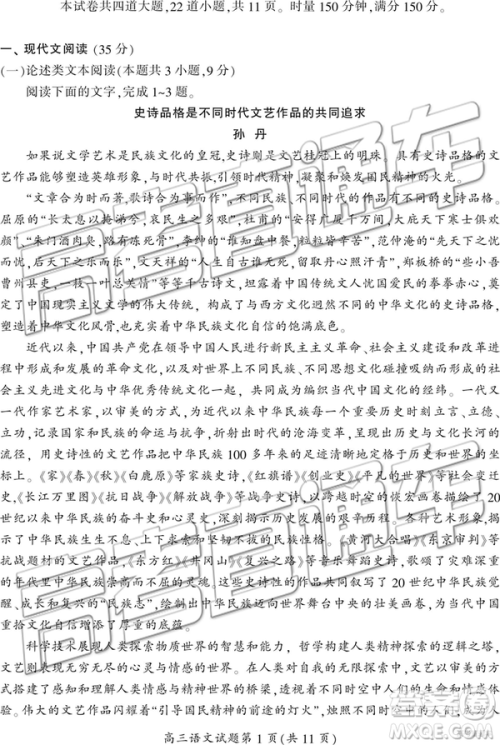 本试卷共四道大题,22道小题,共11页。时量150分钟,满分150分。
一、现代文阅读(35分)
(一)论述类文本阅读(本题共3小题,9分)
阅读下面的文字,完成1~3题。
史诗品格是不同时代文艺作品的共同追求
孙 丹
如果说文学艺术是民族文化的皇冠,史诗则是文艺桂冠上的明珠。具有史诗品格的文
艺作品能够塑造英雄形象,与时代共振,引领时代精神,凝聚和焕发国民精神的火光。
“文章合为时而著,歌诗合为事而作”,不同民族、不同时代的作品有不同的史诗品格。
屈原的“长太息以掩涕兮,哀民生之多艰”,杜甫的“安得广厦千万间,大庇天下寒士俱欢
颜”、“朱门酒肉臭,路有冻死骨”,李绅的“谁知盘中餐,粒粒皆辛苦”,范仲淹的“先天下之忧而忧,
后天下之乐而乐”,文天祥的“人生自古谁无死,留取丹心照汗青”,郑板桥的“些小吾
曹州县吏,一枝一叶总关情”等等千古诗文,坦露着中国传统文人忧国爱民的拳拳赤心,奠
定了中国现实主义文学的伟大传统,构成了与西方文化迥然不同的中华文化的史诗品格,
塑造着中华文化风骨,也充实着中华民族文化自信的饱满底蕴。
近代以来,中国共产党在领导中国人民进行新民主主义革命、社会主义建设和改革进
程中形成和发展的革命文化,同历史与世界的不同文化、不同思想文化碰撞吸纳而形成的社
会主义先进文化与中华优秀传统文化一起,共同成为编织当代中国文化的经纬。一代又
一代作家艺术家,以审美的方式,为近代以来中华民族重要历史时刻立言、立德、
立功,记录国家和民族的命运与抗争,折射出时代的沧海变革,呈现出民族与文化长河的
流径,用史诗性的文艺作品把中华民族100多年来的足迹标示于历史和世界的坐标
上。《家》《春》《秋》《白鹿原》等家族史诗,《红旗谱》《创业史》《平凡的世界》等社会变迁
史,《长江万里图》《抗日战争》《解放战争》等战争史诗,以跨越时空的恢宏画卷描绘了20
世纪以来中华民族的奋斗史和心灵史,深刻揭示历史发展的艰辛历程。各种文艺形象,展
示了中华民族生生不息、上下求索、不屈不挠的民族性格。《黄河大合唱》《东京审判》等
抗战题材的文艺作品,《东方红》《井冈山》《复兴之路》等音乐舞蹈史诗,歌颂了灾难深重
的年代里中华民族不屈的灵魂。这些史诗性的作品共同叙写了20世纪中华民族觉
醒、成长和复兴的“民族志”,绘制出中华民族奋进而立于世界舞台中央的壮美画卷,为当代中国
重拾文化自信增添了厚重的底蕴。
科学技术展现人类探索物质世界的智慧和能力,哲学构建人类精神探索的逻辑之塔,
文艺则表现无穷无尽的心灵与情感世界。伟大的作品能够搭建与读者沟通情感与世界、
以审美的方式搭建起人类情感与精神世界的桥梁,透视不同时空中人们的生命体验和情感体
验。伟大的文艺作品闪耀着“引导国民精神的前途的灯火”,烛照不同时空中人类的命
高三语文试题第1页(共11页)